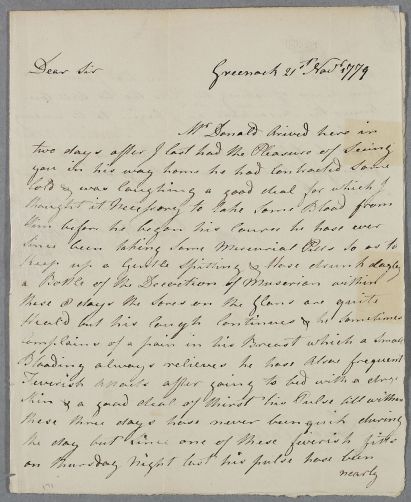 Dear Sir
Greenock 21st Novr. 1779
Mr Donald arived here in
two days after I last had the Pleasure of Seeing
you in his way home he had contracted Some
Cold & was Coughing a good deal for which I
thought it Necessary to take Some Blood from
him before he began his Course he has ever
Since been taking Some Mercurial Pills so as to
keep up a Gentle Spitting & those drunk dayly
a Bottle of the Decoction of Mezerian within
these 8 days the Sores on the Glans are quite
Heald but his Cough Continues & he Sometimes
Complains of a pain in his Breast which a small
Bleeding always relieves he has Also frequent
Feverish Attacks after going to bed with a dry
Skin & a good deal of thirst his Pulse till within
these three days have never been quick during
the day but Since one of these feverish fitts
on thursday Night last his pulse have been
nearly